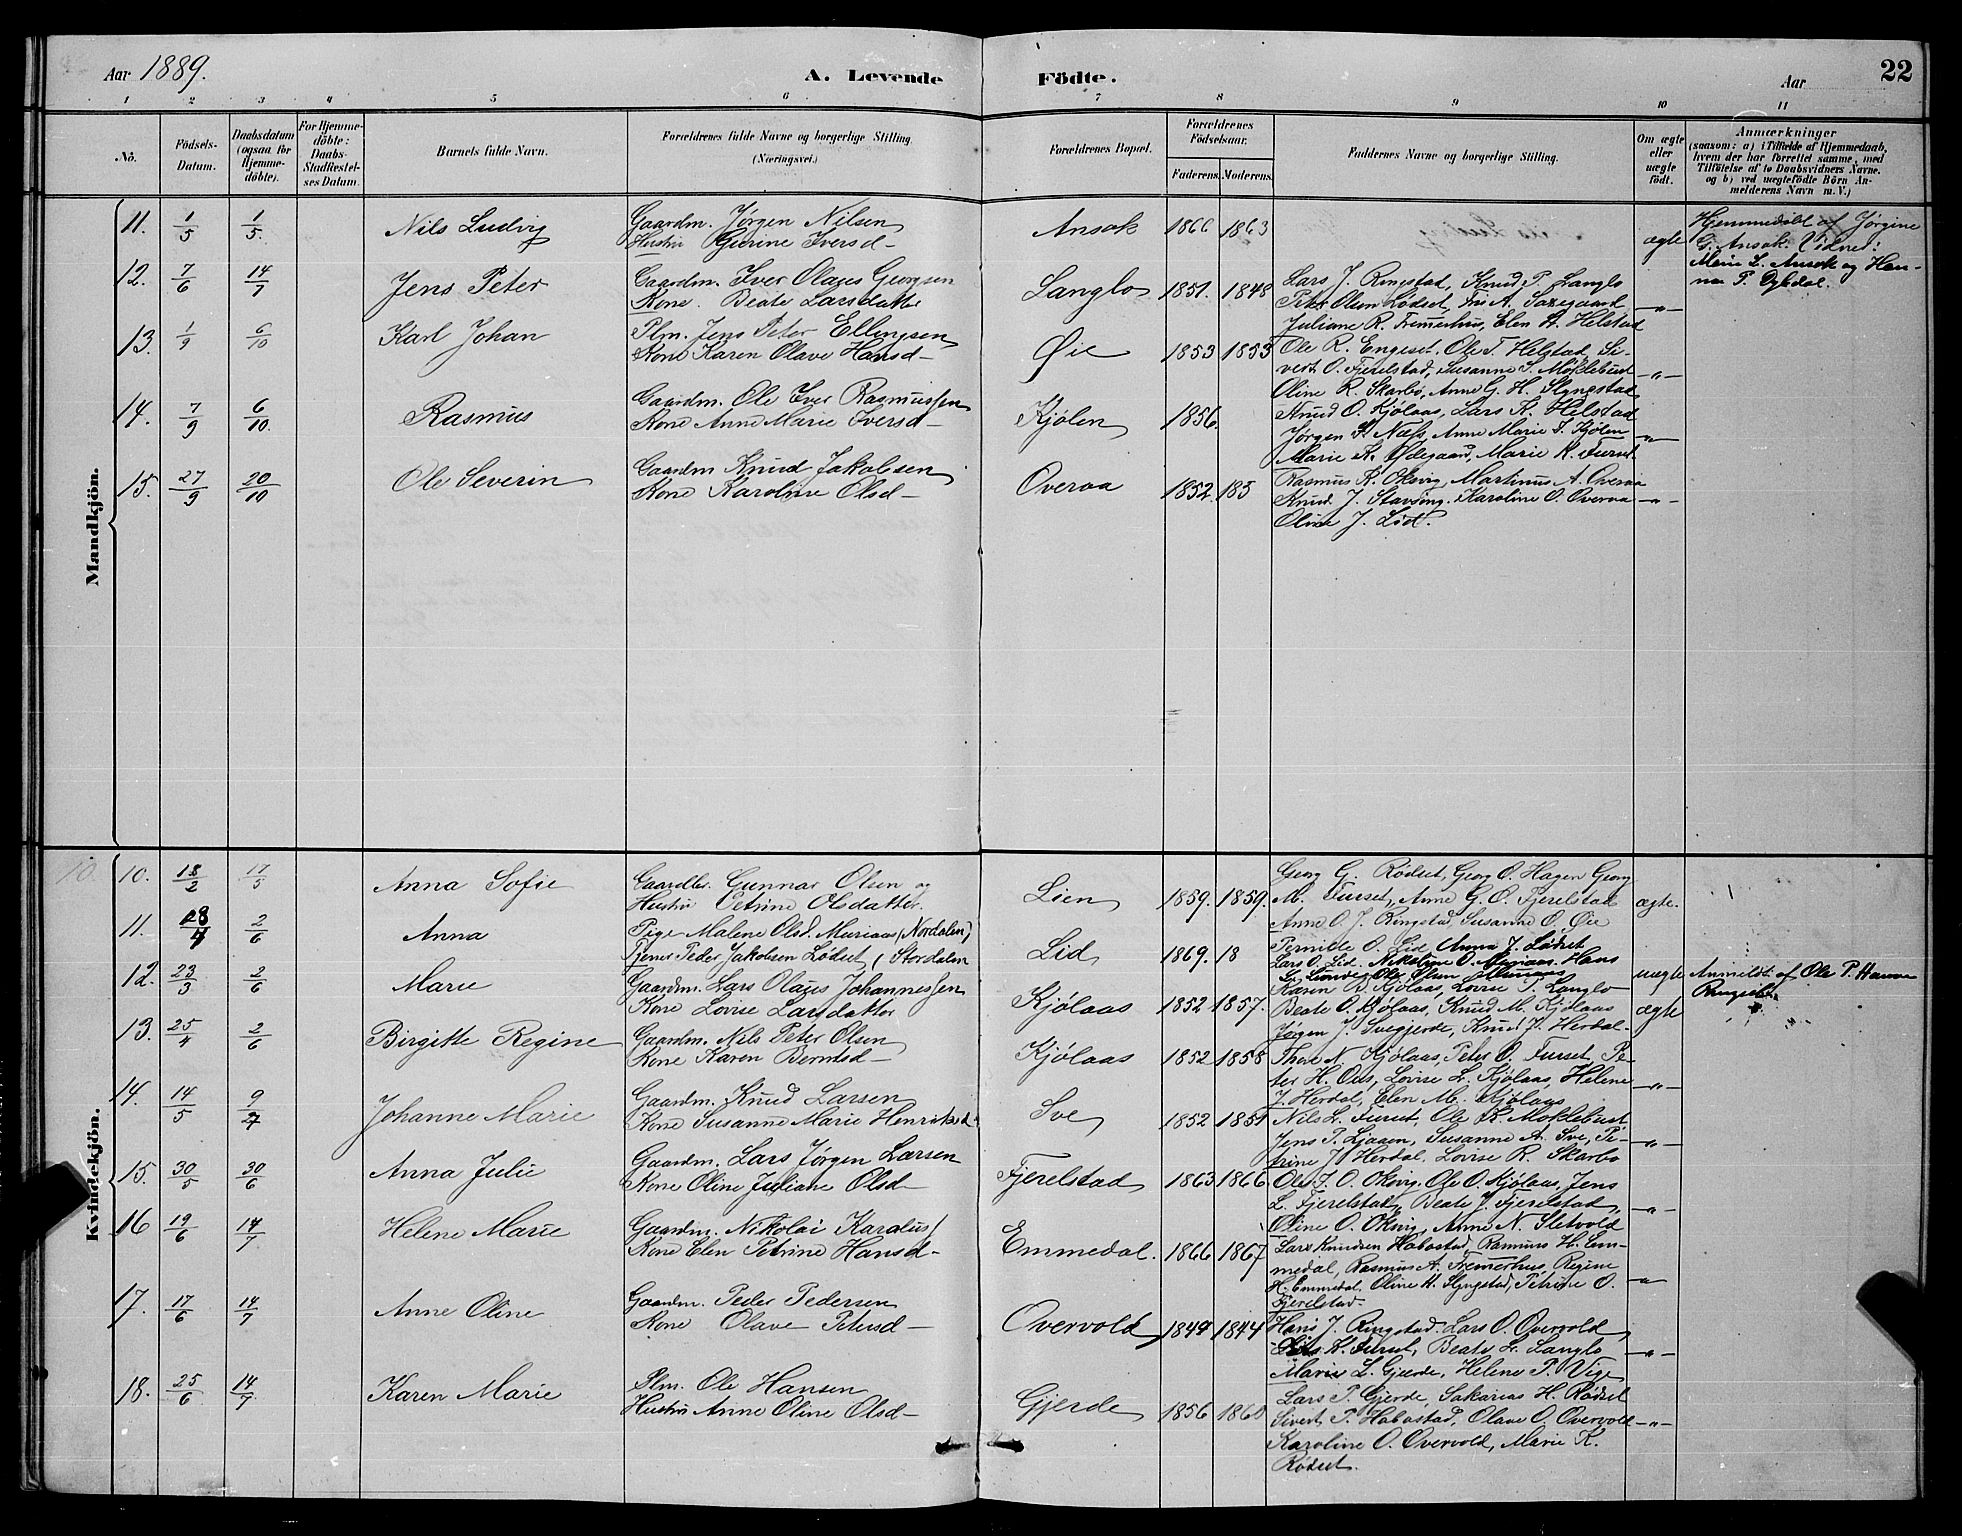 Aar 1889.
A. Levende
Födte.
Aar
22
1 2 3 4 5 6 7 8 9 10 11
No.
Födsels-
Datum.
Daabsdatum
(ogsaa for
Hjemme-
döbte).
For Hjemme-
döbte:
Daabs-
Barnets fulde Navn.
Forældrenes fulde Navne og borgerlige Stilling.
(Næringsvei.)
Forældrenes Bopæl.
Forældrenes
Födselsaar.
Faderens. Moderens.
Faddernes Navne og borgerlige Stilling.
Om ægte
eller
uægte
födt.
Anmærkninger
(saasom: a) i Tilfælde af Hjemmedaab,
hvem der har forrettet samme, med
Tilföielse af to Daabsvidners Navne.
og b) ved uægtefödte Börn An-
melderens Navn m. V.)
Mandkjön.
11. 1/5 1/5. Nils Ludvig
Gaardm. Jørgen Nilsen
Hustru Gjerine Iversd-
Ansok 1866 1863
ægte
Hjemmedøbt af Jørgine
G. Ansok. Vidner:
Marie L. Ansok og Han-
na P. Dybdal.
12. 7/6 14/7 Jens Peter
Gaardm. Iver Olaves Georgsen
Kone. Beate Larsdatter
Langlo 1851. 1848
Lars J. Ringstad, Knud P. Langlo
Peter Olsen Lødset, A. Saxegaard
Juliane R. Fremerhus, Elen H. Helstad
-"-
13. 1/9 6/10 Karl Johan
Plm. Jens Peter Ellingsen
Kone Karen Olave Hansd-
Øie 1853 1853
Ole R. Engeset. Ole T. Helstad, Si-
vert O. Fjerelstad, Susanne S. Moldebust
Oline R. Skarbø, Anne G. H. Slyngstad
-"-
14. 7/9 6/10. Rasmus
Gaardm. Ole Iver Rasmussen
Kone Anne Marie Iversd-
Kjølen 1856.
Knud O. Kjølaas, Lars K. Helstad
Jørgen Næss, Anne Marie I. Kjølen
Marie K. Ødegaard, Marie K. Furset.
-"-
15. 27/9 20/10 Ole Severin
Gaardm Knud Jakobsen
Kone Karoline Olsd-
Overaa 1852. 185
Rasmus K. Oksvig, Martinus A. Overaa
Knud J. Stavseng. Karoline O. Overaa
Oline J. Lid.
-"-
Kvindekjön.
10. 10. 18/2 17/5 Anna Sofie
Gaardbr. Gunnar Olsen og
Hustru Petrine Olsdatter
Lien 1859. 1859.
Georg G. Rødset, Georg O. Hagen Georg
M. Furset, Anne G. O. Fjerelstad
Anne O. J. Ringstad, Susanne O. Øie
ægte.
11. 28/4 2/6 Anna
Pige Malene Olsd. Muriaas (Nordalen)
Tjener Peder Jakobsen Lødset, (Stordalen
Lid 1869. 18
Pernille O. Lid, Anna J. Lødset
Lars O. Lid. Nikoline O. Muriaas Hans
uægte
Anmeldt af Ole P. Hauve
12. 23/3 2/6 Marie
Gaardm. Lars Olaus Johannessen
Kone Lovise Larsdatter
Kjølaas 1852 1857.
Karen Kjølaas, Lovise T. Langlo
Beate O. Kjølaas, Knud M. Kjølaas
Jørgen J. Svegjerde, Knud J. Herdal-
ægte
13. 25/4 2/6 Birgitte Regine
Gaardm. Nils Peter Olsen
Kone Karen Berntsd-
Kjølaas 1852 1858
Thore N. Kjølaas, Peter O. Furset, Pe-
ter H. Ous, Lovise L. Kjølaas, Helene
J. Herdal, Elen M. Kjølaas
-"-
14. 14/5 9/7 Johanne Marie
Gaardm. Knud Larsen
Kone Susanne Marie Henriksd-
Sve 1852 1851
Nils L. Furset, Ole K. Moldebust
Jens P. Ljaaen, Susanne A. Sve, Pe-
trine J. Herdal, Lovise R. Skarbø
-"-
15. 30/5 30/6 Anna Julie
Gaardm. Lars Jørgen Larsen
Kone Oline Juliane Olsd-
Fjerelstad 1863 1866
Ole J. O. Oksvig. Ole O. Kjølaas, Jens
L. Fjerelstad, Beate J. Fjerelstad,
Oline O. Oksvig, Anne N. Sletvold
-"-
16 19/6 14/7 Helene Marie
Gaardm. Nikolai Karolus
Kone Elen Petrine Hansd-
Emmedal. 1866 1867
Lars Knudsen Habostad, Rasmus H. Em-
medal, Rasmus A. Fremerhus, Regine
H. Emmedal, Oline H. Slyngstad, Petrine O.
Fjerelstad.
-"-
17. 17/6 14/7 Anne Oline
Gaardm. Peder Pedersen
Kone Olave Petersd-
Overvold 1844 1844
Hans J. Ringstad. Lars O. Overvold
K. Furset, Beate L. Langlo
Marie L. Gjerde, Helene P. Vige
-"-
18. 25/6 14/7 Karen Marie
Plm. Ole Hansen
Hustru Anne Oline Olsd-
Gjerde 1856 1860
Lars P. Gjerde, Sakarias H. Rødset
Sivert P. Habostad, Olave O. Overvold
Karoline O. Overvold, Marie K.
Rødset.
-"-